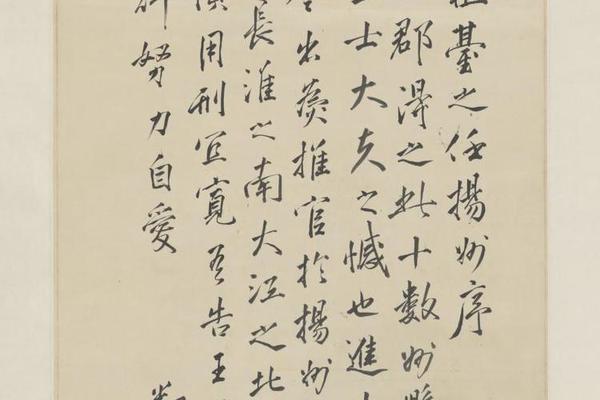 臺之任揚州序
郡得之此十數州縣
士大夫之憾也進
出推官於揚州
長淮之南大江之北
用刑宜寬吾告王
努力自愛